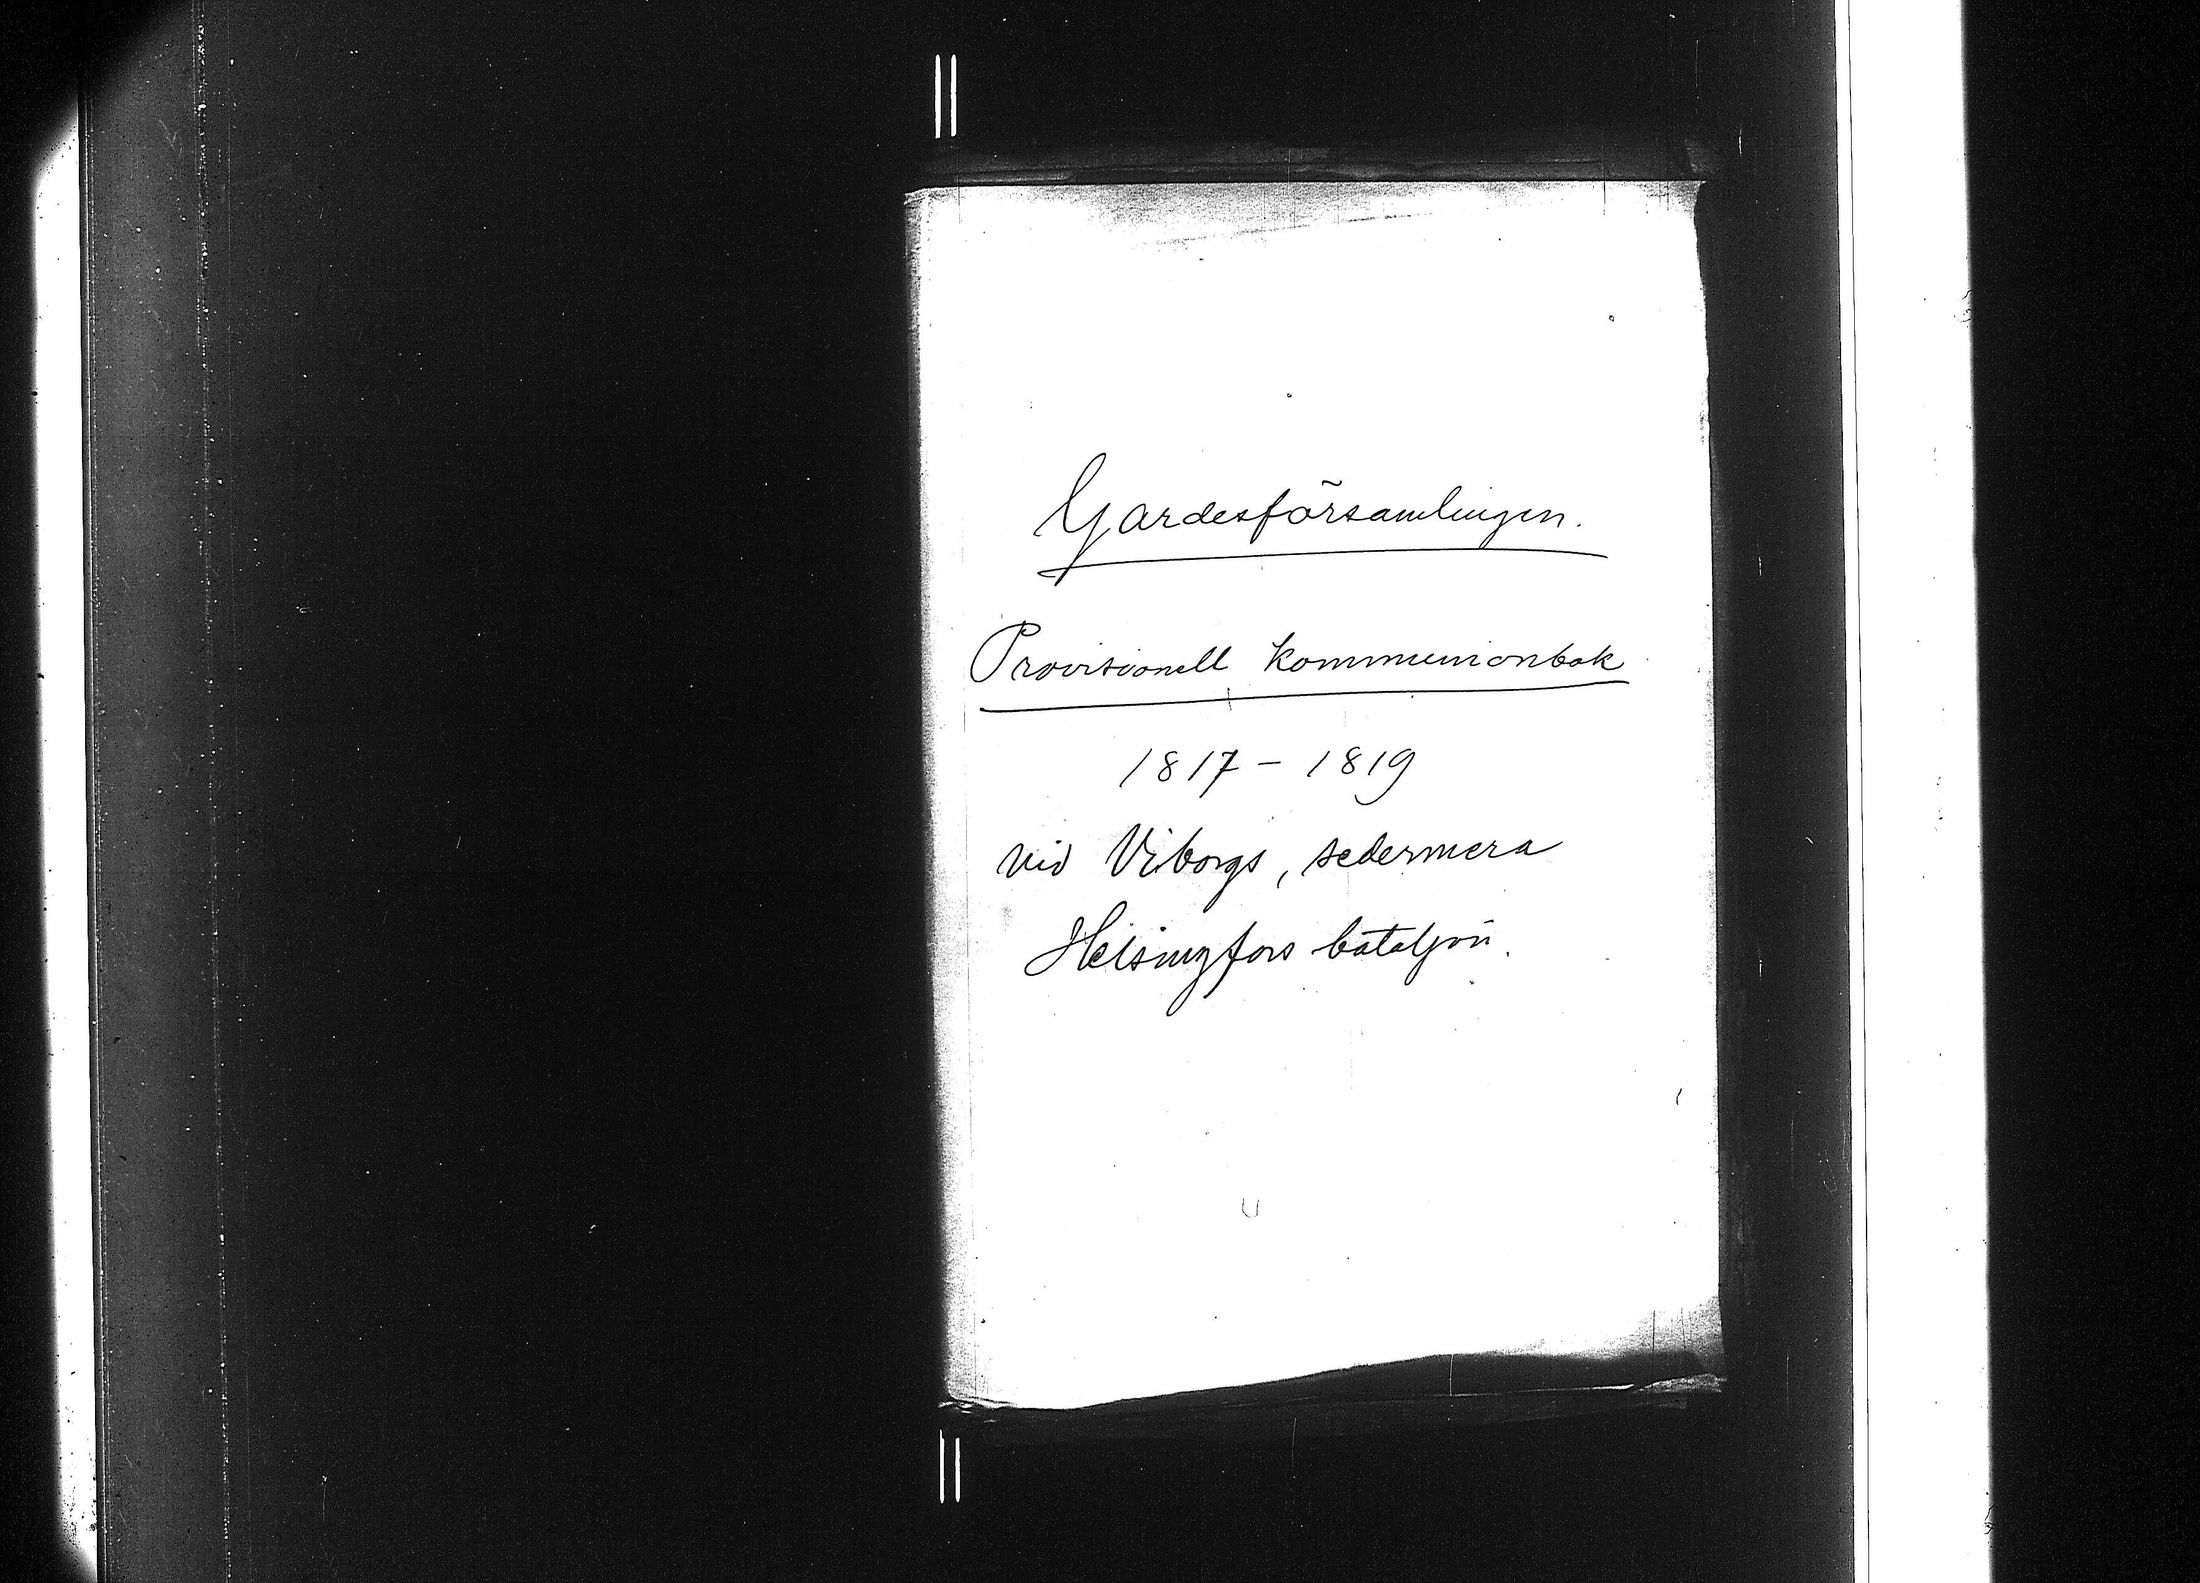 Gardesförsamlingen.
Provisionell kommunionbok
1817 - 1819
vid Viborgs, sedermera
Helsingfors bataljon.